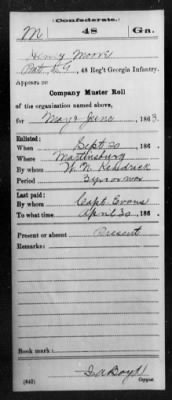 Confederate.
M 48 Ga.
Henry Moore
Pvt. Co. G, 48 Reg't Georgia Infantry.
Appears on
Company Muster Roll
of the organization named above,
for May & June, 1863.
Enlisted:
When Sept 20, 186 .
Where Martinsburg
By whom W. N. Kendrick
Period 3 yrs or war
Last paid:
By whom Capt. Evans
To what time April 30, 186 .
Present or absent Present
Remarks:
Book mark:
(642) Copyist.